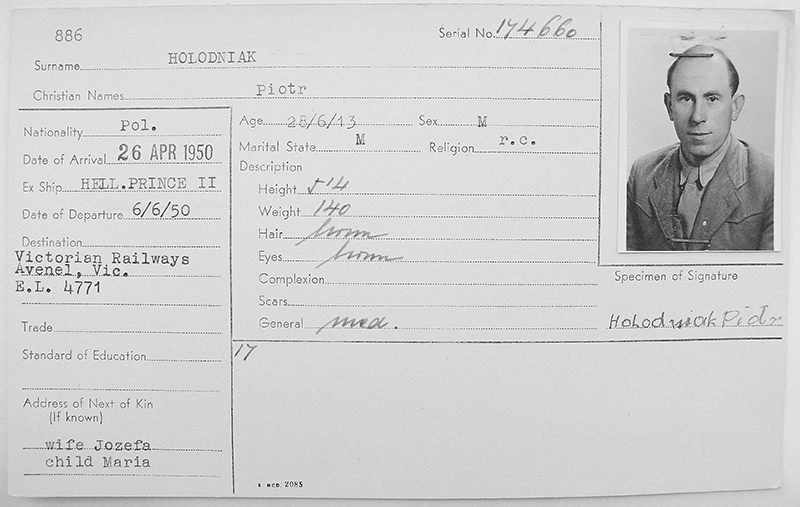 886
Serial No. 174660
Surname HOLODNIAK
Christian Names Piotr
Nationality Pol.
Date of Arrival 26 APR 1950
Ex Ship HELL.PRINCE II
Date of Departure 6/6/50
Destination
Victorian Railways
Avenel, Vic.
E.L. 4771
Trade
Standard of Education
Address of Next of Kin
(If known)
wife Jozefa
child Maria
Age 28/6/13 Sex M
Marital State M Religion r.c.
Description
Height 5'4
Weight 140
Hair brown
Eyes brown
Complexion
Scars
General med.
17
Specimen of Signature
Holodniak Piotr
S. MCD. 2085